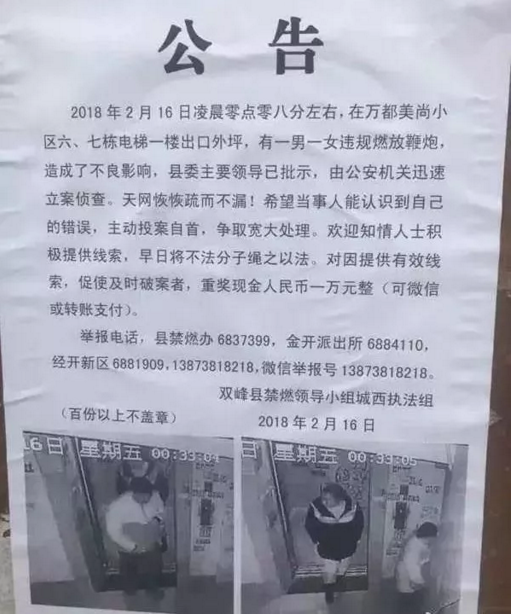 公 告
2018 年 2 月 16 日凌晨零点零八分左右，在万都美尚小
区六、七栋电梯一楼出口外坪，有一男一女违规燃放鞭炮，
造成了不良影响，县委主要领导已批示，由公安机关迅速
立案侦查。天网恢恢疏而不漏！希望当事人能认识到自己
的错误，主动投案自首，争取宽大处理。欢迎知情人士积
极提供线索，早日将不法分子绳之以法。对因提供有效线
索，促使及时破案者，重奖现金人民币一万元整（可微信
或转账支付）。
举报电话，县禁燃办 6837399，金开派出所 6884110，
经开新区 6881909,13873818218,微信举报号 13873818218。
双峰县禁燃领导小组城西执法组
（百份以上不盖章） 2018 年 2 月 16 日
16日 星期五 00:33:04
日 星期五 00:33:05